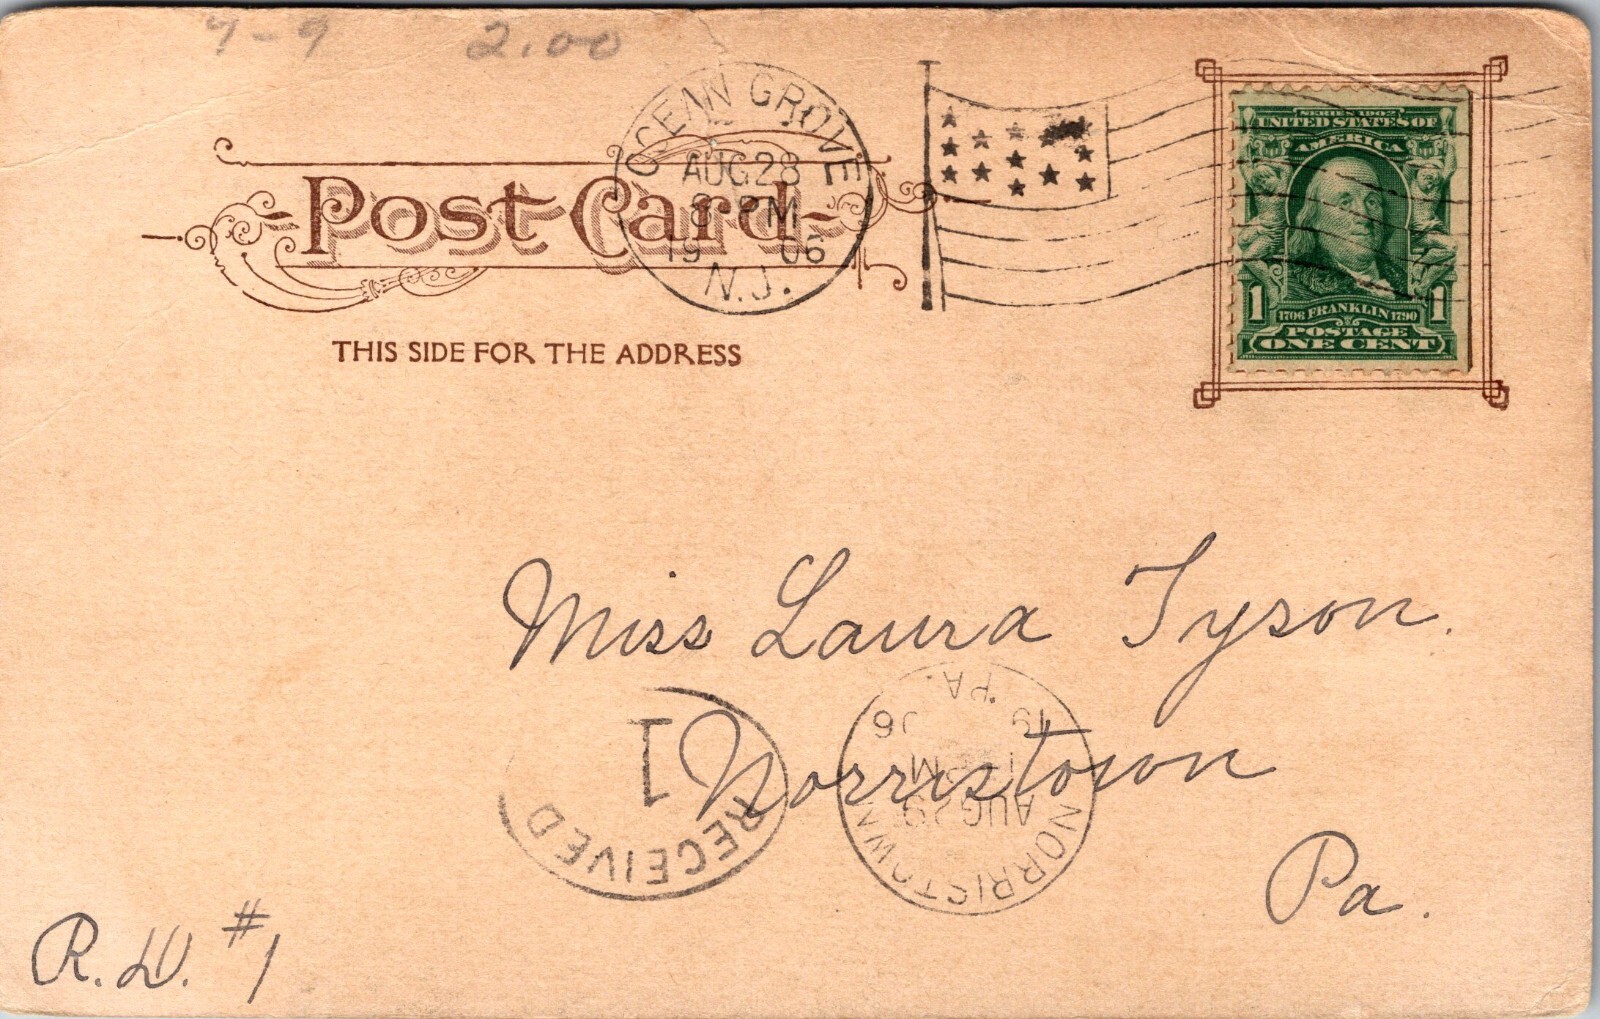 7-9 2.00
OCEAN GROVE
AUG 28
8 PM
1906
N.J.
SERIES 1902
UNITED STATES OF
AMERICA
1 1706 FRANKLIN 1790 1
POSTAGE
ONE CENT
Post Card
THIS SIDE FOR THE ADDRESS
Miss Laura Tyson.
Norristown
Pa.
RECEIVED
1
NORRISTOWN
AUG 29
19 06
PA.
R.D. #1